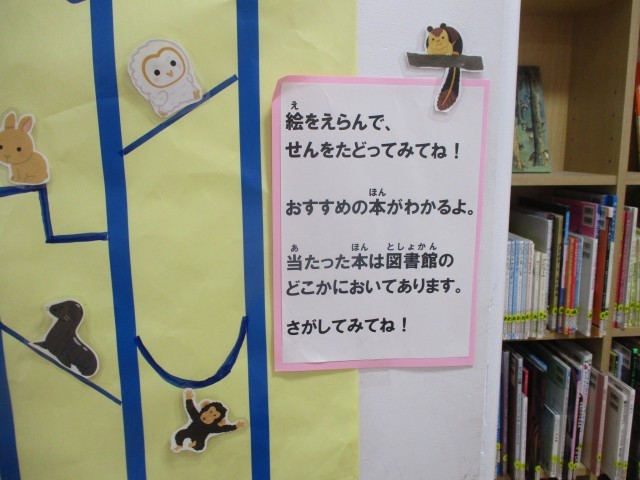 絵をえらんで、
せんをたどってみてね！
おすすめの本がわかるよ。
当たった本は図書館の
どこかにおいてあります。
さがしてみてね！